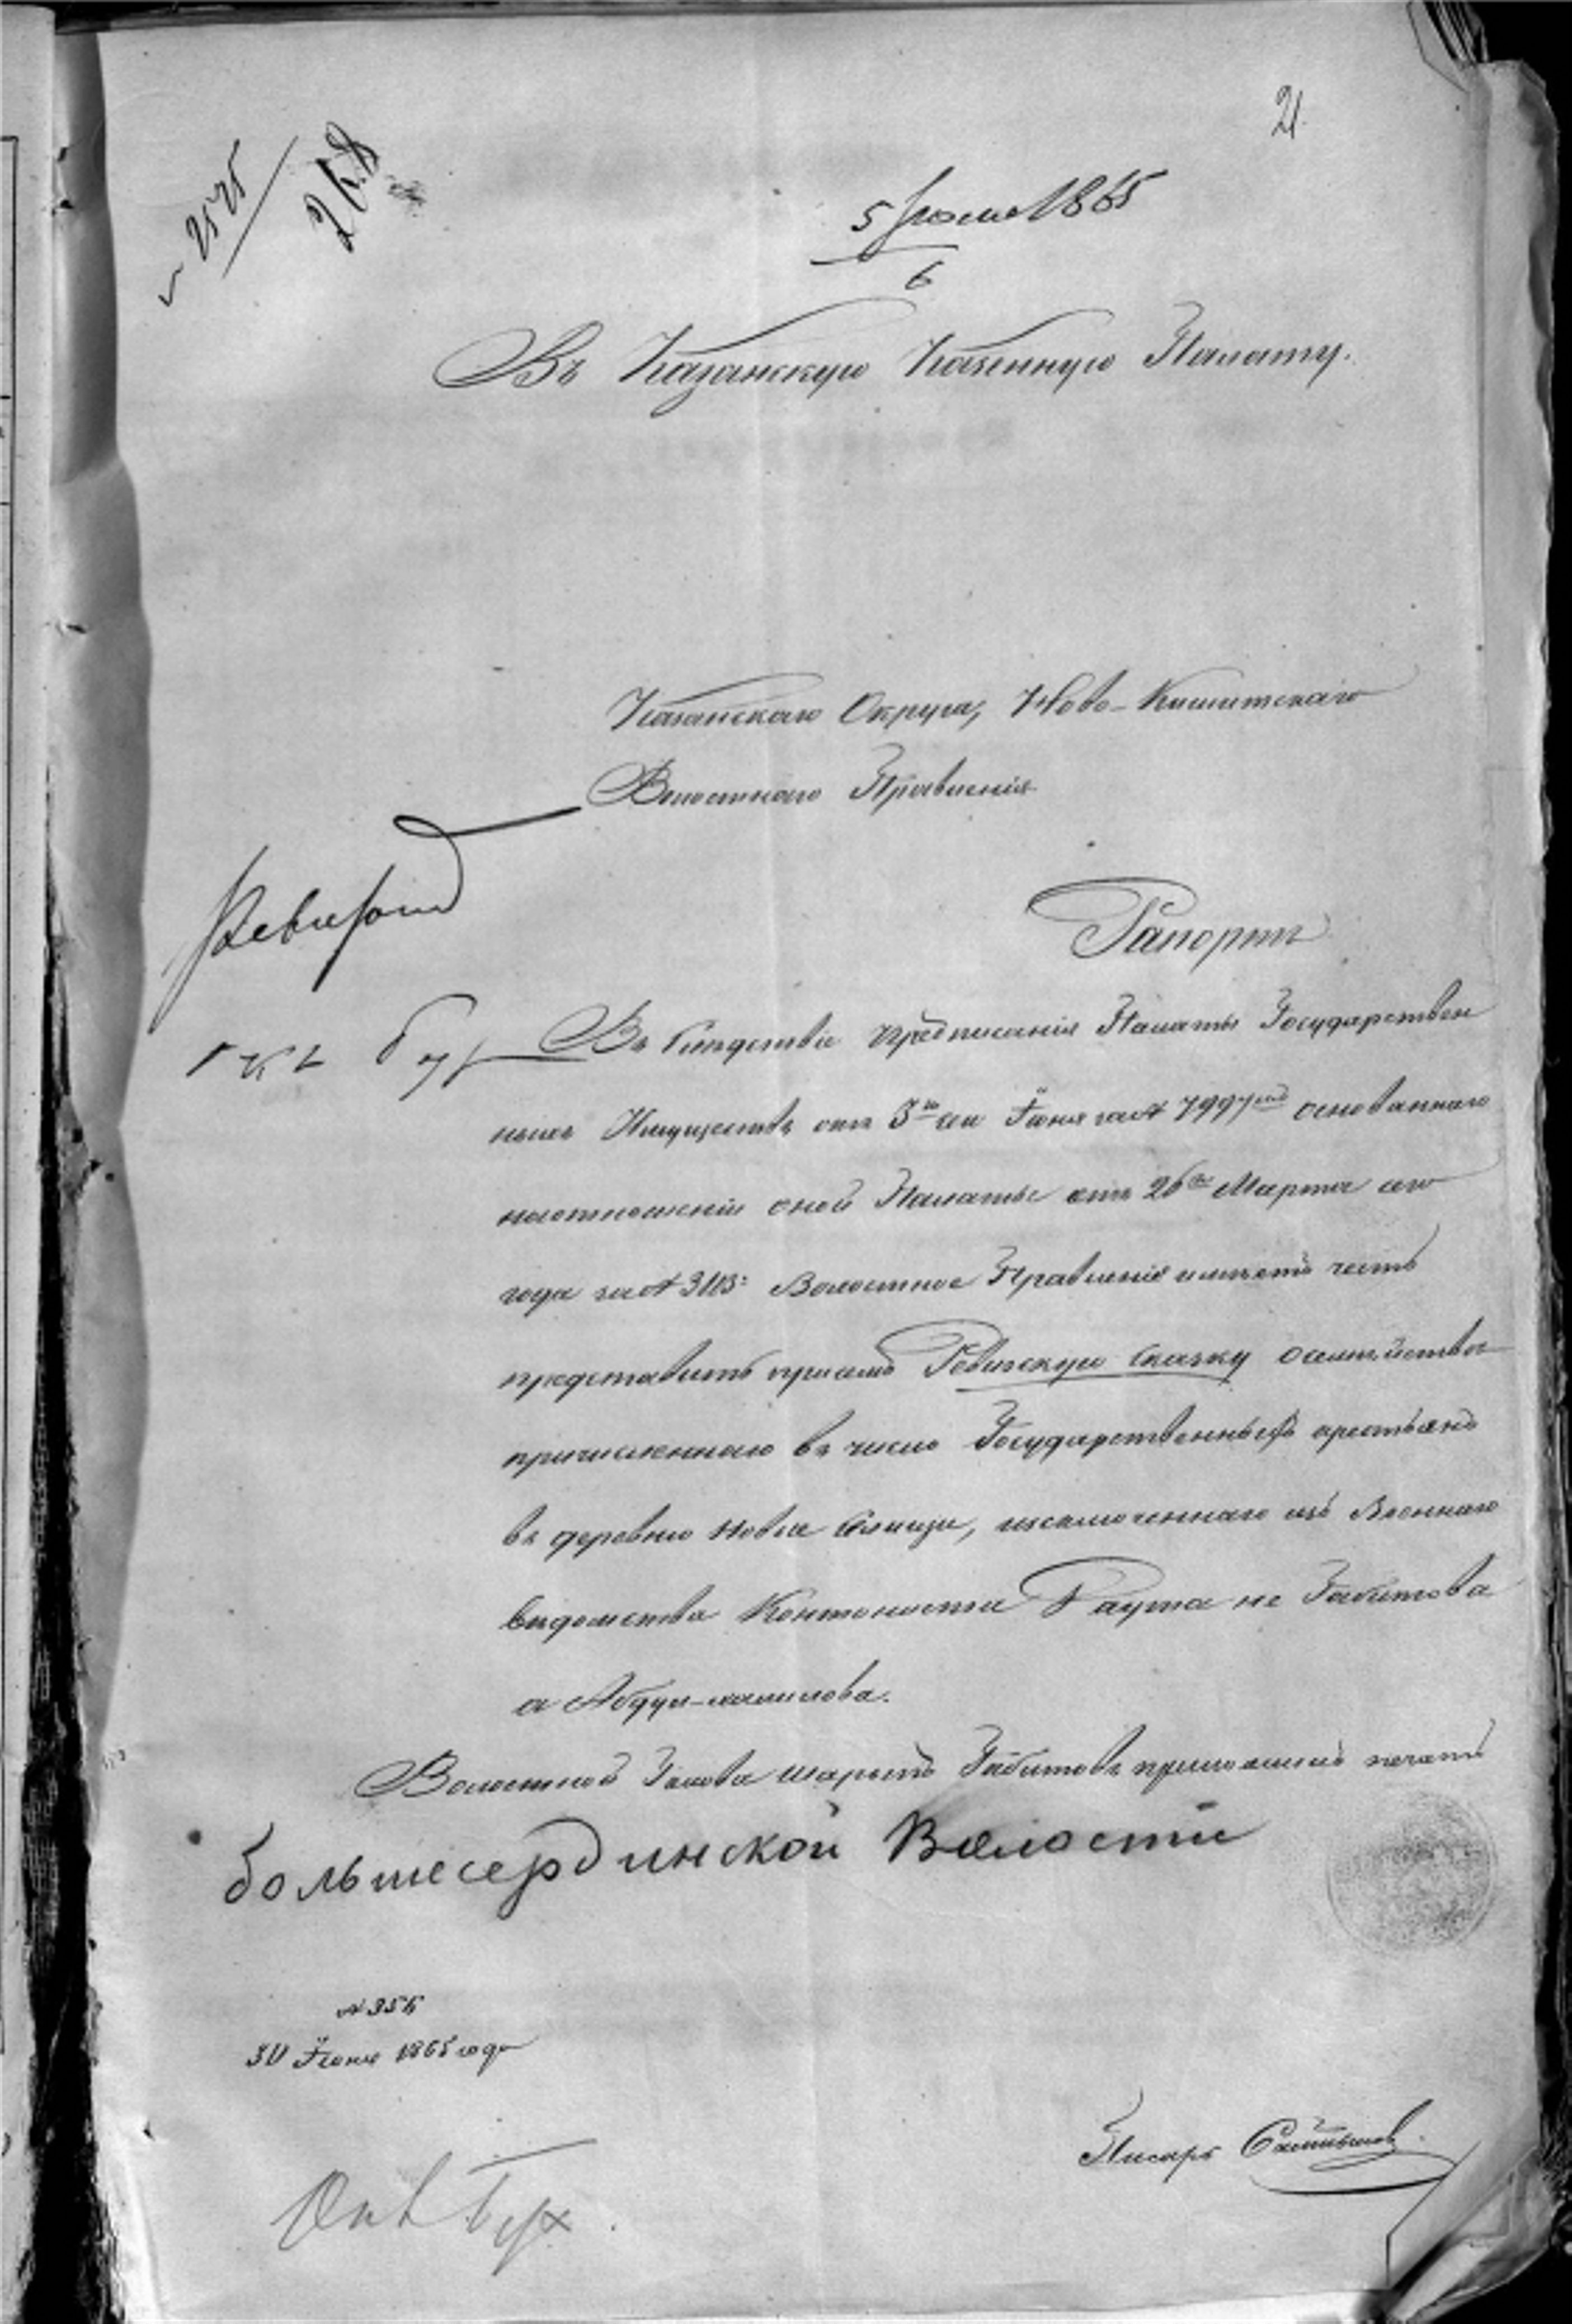 21
2525
268
5 Июля 1865
6
Въ Казанскую Казенную Палату.
Казанскаго Округа, Ново-Кишитскаго
Волостнаго Правленія
Рапортъ
Въ следствіе предписанія Палаты Государствен
ныхъ Имуществъ отъ 3го Іюня за № 7997 основаннаго
наотношеніи оной Палаты отъ 26го Марта сего
года за № 3113: Волостное Правленіе имѣетъ честь
представить присемъ Ревизскую сказку осемействѣ
причисленнаго въ число Государственныхъ крестьянъ
въ деревню Новыя, исключеннаго изъ Военнаго
вѣдомства Кантониста не Габитова
а Абдул-халилова.
Волостной Голова Шарыпъ Габитовъ приложилъ печать
большесердинской Волости
№ 356
30 Іюня 1865 года
Писарь